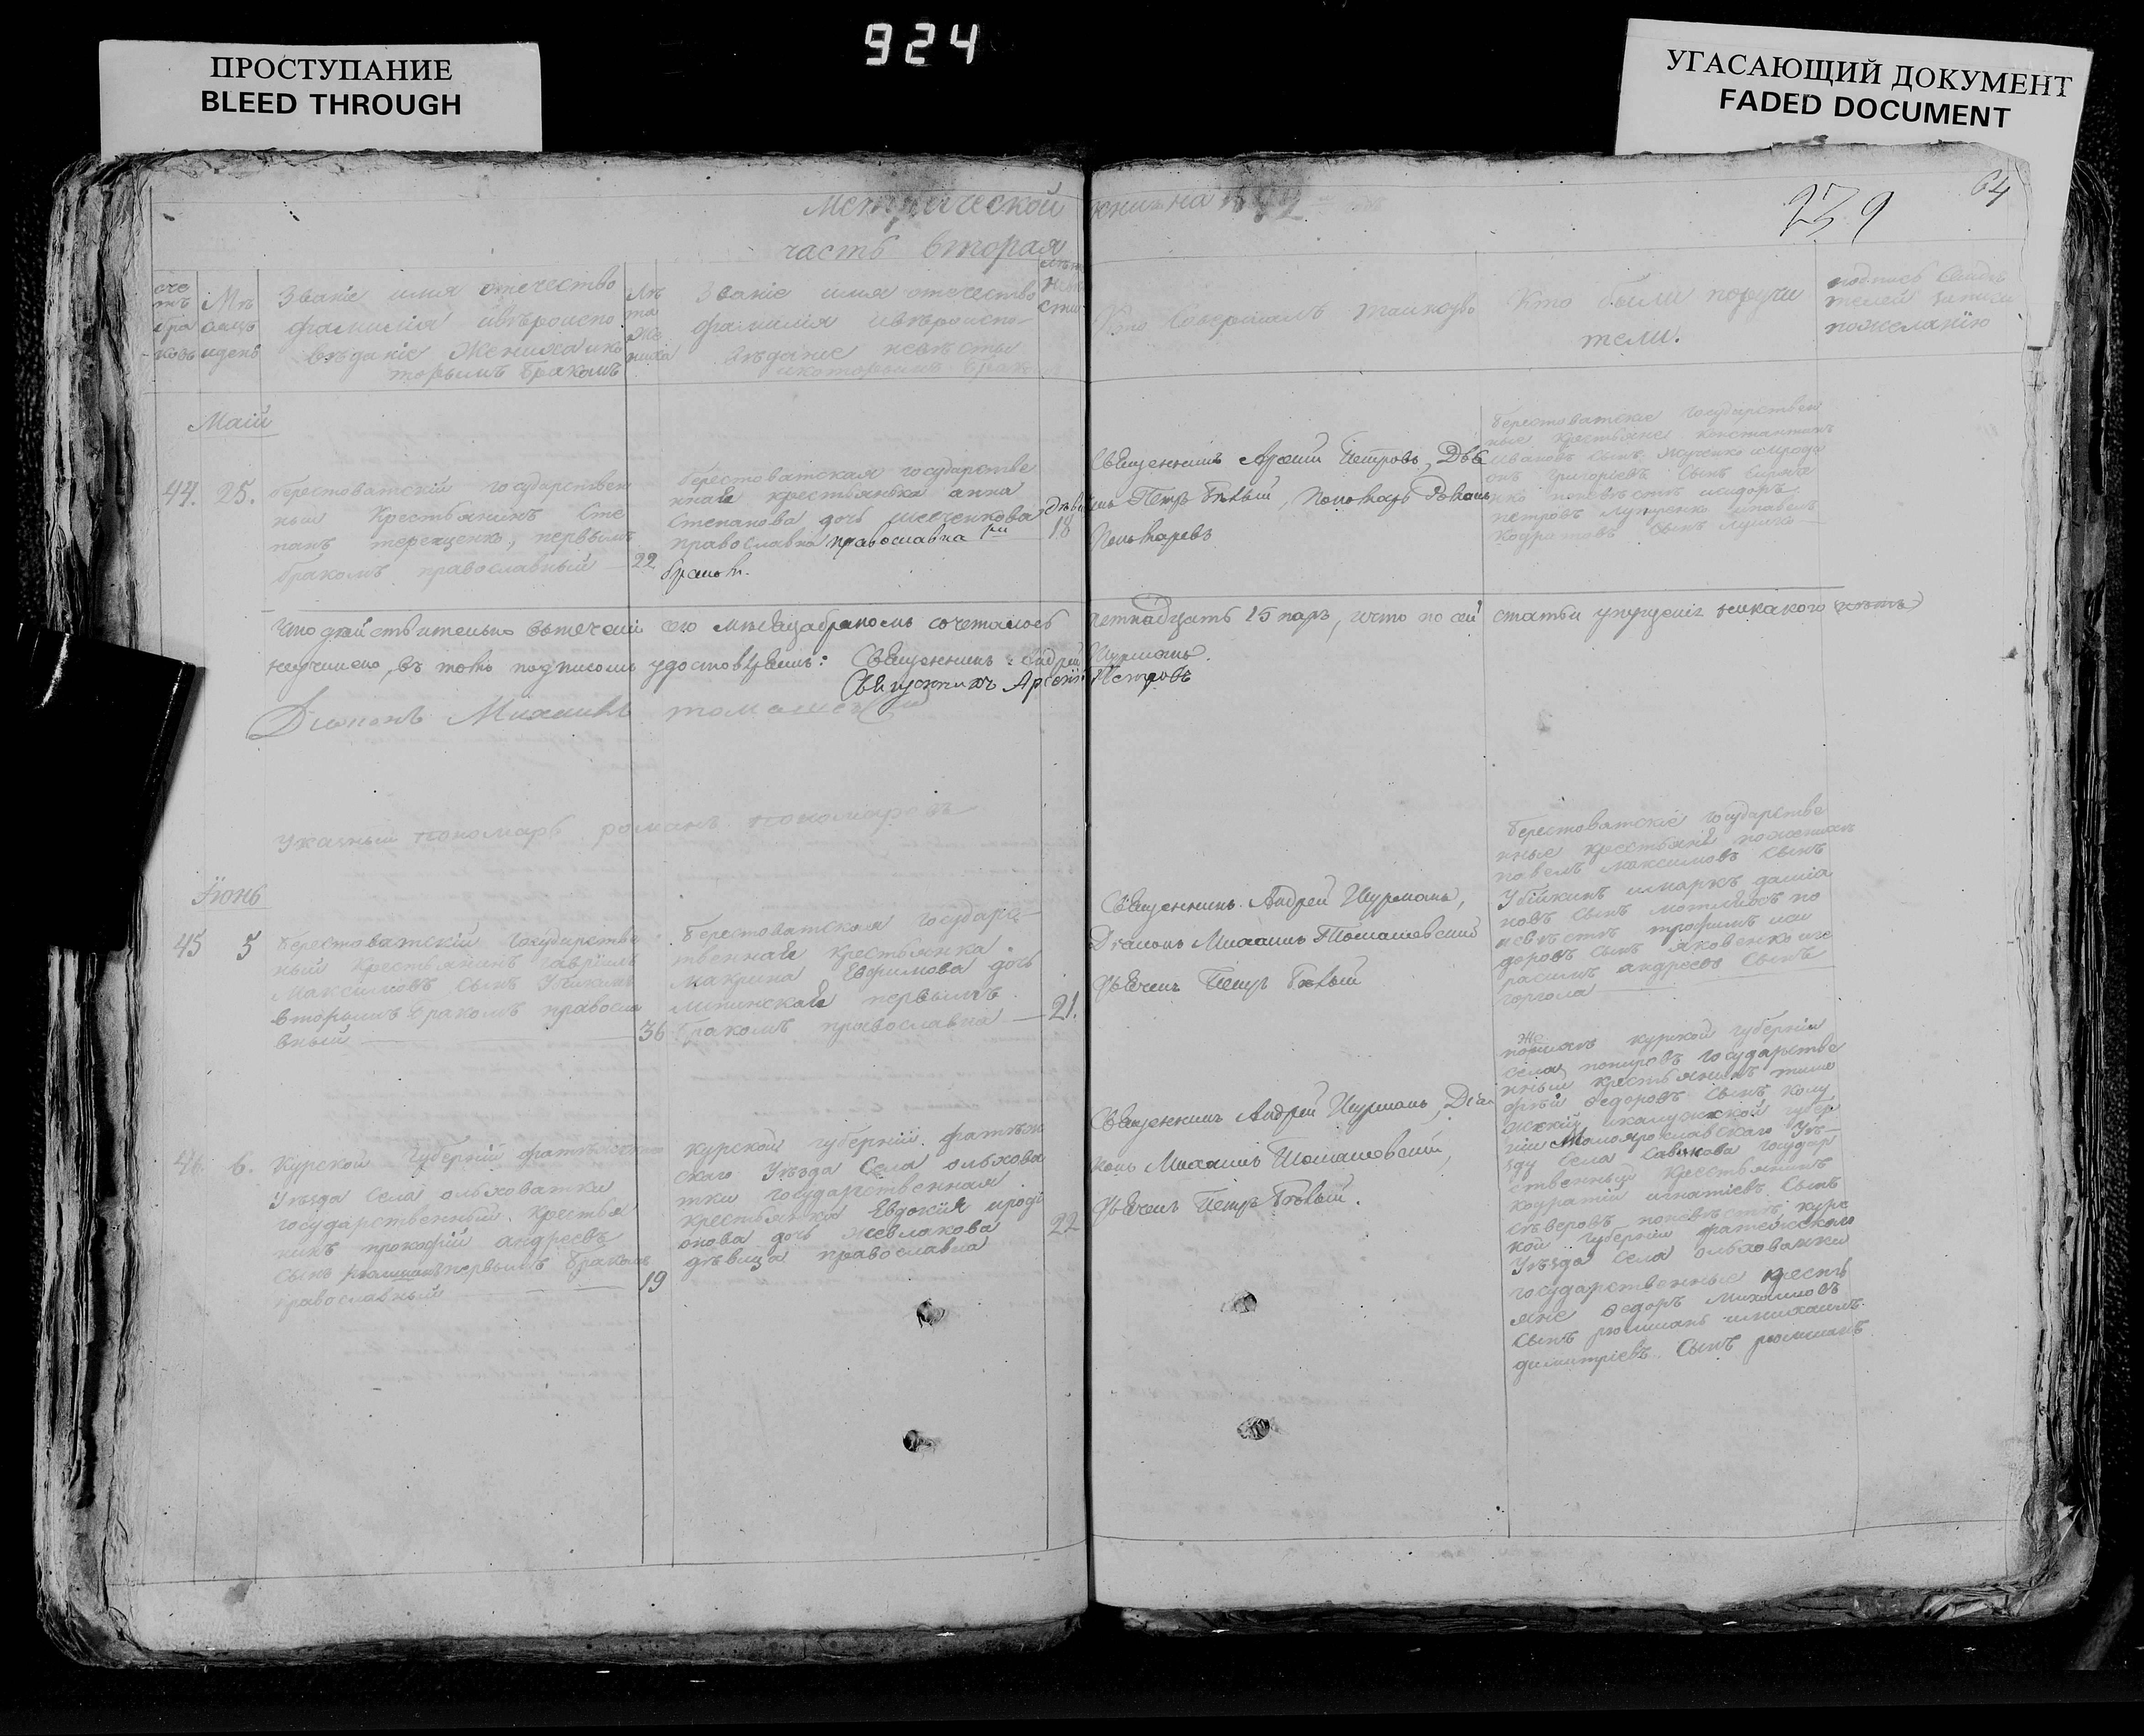 924
ПРОСТУПАНИЕ
BLEED THROUGH
УГАСАЮЩИЙ ДОКУМЕНТ
FADED DOCUMENT
Метрической книги на
часть вторая
239
64
сче
тъ
бра
ковъ
Мѣ
сяцъ
идень
Званіе имя отечество
фамилія ивѣроиспо
вѣданіе Жениха ико
торымъ бракомъ
Лѣ
та
Же
ниха
Званіе имя отечество
фамилія ивѣроиспо-
вѣданіе невѣсты
икоторымъ брако
Кто Совершалъ таинство
Кто были поручи
тели.
подпись Свидѣ
телей записи
пожеланію
Маій
44. 25.
берестоватскій государствен
ный Крестьянинъ Сте
панъ терещенко, первымъ
бракомъ православный 22
берестоватская государстве
нная крестьянька анна
Степанова дочь шевченкова
православна православна
бракомъ.
18
Священникъ Арсеній Петровъ, Дья
Петръ Бѣлый, Пономарь Романъ
Пономаревъ
берестоватскіе государствен
ные крестьяне константинъ
ивановъ Сынъ
григоріевъ Сынъ
поневѣстѣ исидоръ
петровъ Луценко ипавелъ
Кодратовъ Сынъ
Что дѣйствительно втеченіи сего мѣсяца бракомъ сочеталось петнадцать 15 паръ, ичто по сей статьи упущенія никакого
неучинено, въ томъ подписомъ удостовѣряемъ: Священникъ Андрей Шурманъ.
Священникъ Арсеній Петровъ
Діаконъ Михаилъ томашевскій
указный пономарь романъ пономаревъ
Іюнь
45 5
берестоватскій государстве
ный Крестьянинъ гавріилъ
Максимовъ Сынъ Убійкинъ
вторымъ бракомъ правосла
вный 36
берестоватская государс-
твенная крестьянка
макрина Ефимова дочь
первымъ
бракомъ православна 21.
Священникъ Андрей Шурманъ,
Діаконъ Михаилъ Томашевскій
Дьячекъ Петръ Бѣлый
берестоватскіе государстве
нные крестьяне поженихѣ
павелъ максимовъ Сынъ
Убійкинъ имаркъ даміа
новъ Сынъ по
невѣстѣ трофимъ иси
доровъ Сынъ яковенко иге
расимъ андреевъ Сынъ
горгола
46. 6.
Курской губерніи фатѣжскаго
Уѣзда Села ольховатки
государственный Крестья
нинъ прокофій андреевъ
Сынъ рюминъ первымъ бракомъ
православный 19
курской губерніи фатѣж
скаго Уѣзда Села ольхова
тки государственная
крестьянка Евдокія ироді
онова дочь жевлакова
дѣвица православна
22
Священникъ Андрей Шурманъ, Діа
конъ Михаилъ Томашевскій,
Дьячекъ Петръ Бѣлый.
курской губерніи
села государстве
нный крестьянинъ тимо
фѣй ѳедоровъ Сынъ
икалужской губер
ніи Малоярославскаго Уѣ-
зду Села Савинова государ
ственный Крестьянинъ
кодратій игнатіевъ Сынъ
сѣверовъ поневѣстѣ курс
кой губерніи фатежскаго
Уѣзда Села ольховатки
государственные кресть
яне ѳедоръ михаиловъ
Сынъ рюминъ имихаилъ
димитріевъ Сынъ рюминъ